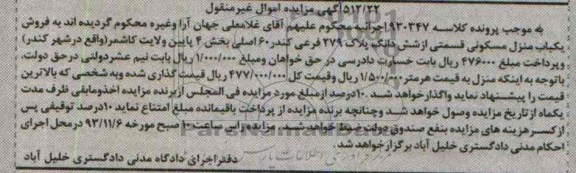 ۵۱۲/۲۲آگهی مزایده اموال غیرمنقول
به موجب پرونده کلاسه ۹۳۰۳۴۷اجرایی محکوم علیهم آقای غلامعلی جهان آرا وغیره محکوم گردیده اند به فروش
یکباب منزل مسکونی قسمتی ازشش دانگ پلاک ۲۷۹ فرعی کندر۶۰ اصلی بخش ۴ پایین ولایت کاشمر(واقع در شهر کندر)
وپرداخت مبلغ ۴۷۶۰۰۰ ریال بابت خسارت دادرسی در حق خواهان ومبلغ ۱/۰۰۰/۰۰۰ ریال بابت نیم عشردولتی درحق دولت.
باتوجه به اینکه منزل به قیمت هرمتر ۱/۵۰۰/۰۰۰ ریال وقیمت کل ۴۷۷/۰۰۰/۰۰۰ ریال قیمت گذاری شده وبه شخصی که بالاترین
قیمت را پیشنهاد نماید واگذارخواهد شد. ۱۰درصد ازمبلغ مورد مزایده فی المجلس ازبرنده مزایده اخذومابقی ظرف مدت
یکماه از تاریخ مزایده وصول خواهد شد وچنانچه برنده مزایده از پرداخت باقیمانده مبلغ امتناع نماید ۱۰درصد توقیفی پس
ازکسرهزینه های مزایده بنفع صندوق دولت ضبط خواهد شد. مزایده راس ساعت ۱۰ صبح مورخه ۹۳/۱۱/۶ درمحل اجرای
احکام مدنی دادگستری خلیل آباد برگزارخواهد شد.
دفتراجرای دادگاه مدنی دادگستری خلیل آباد